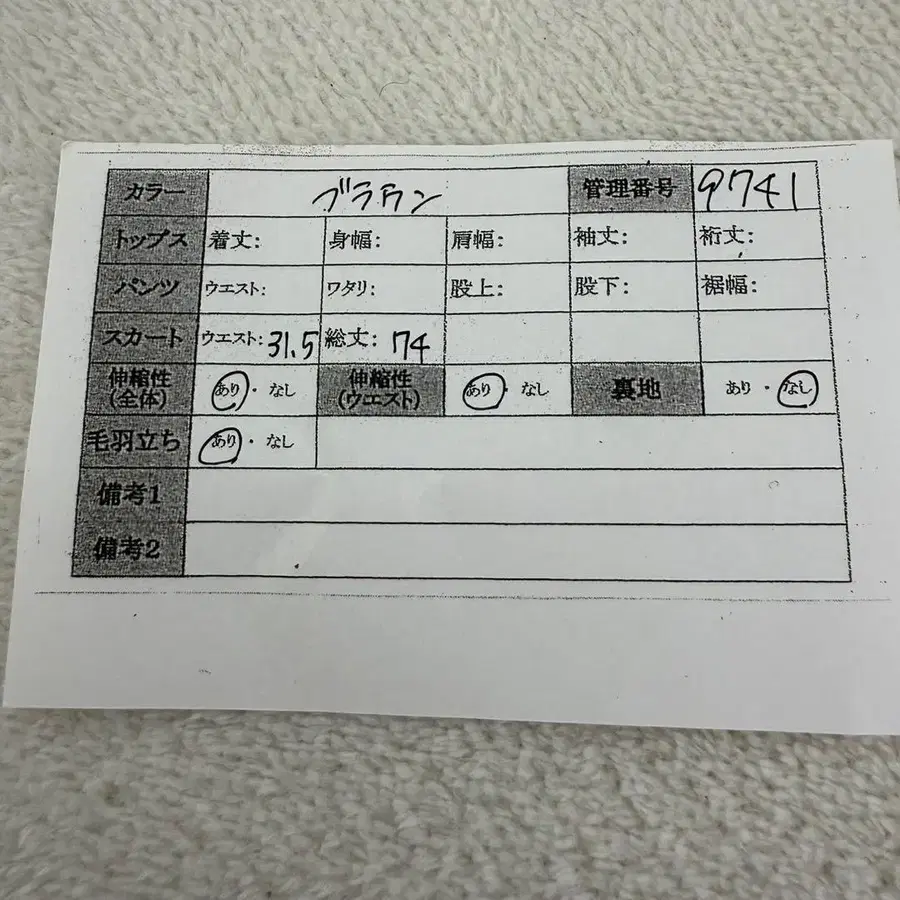 カラー ブラウン 管理番号 9741
トップス 着丈: 身幅: 肩幅: 袖丈: 裄丈:
パンツ ウエスト: ワタリ: 股上: 股下: 裾幅:
スカート ウエスト: 31.5 総丈: 74
伸縮性(全体) あり・なし 伸縮性(ウエスト) あり・なし 裏地 あり・なし
毛羽立ち あり・なし
備考1
備考2